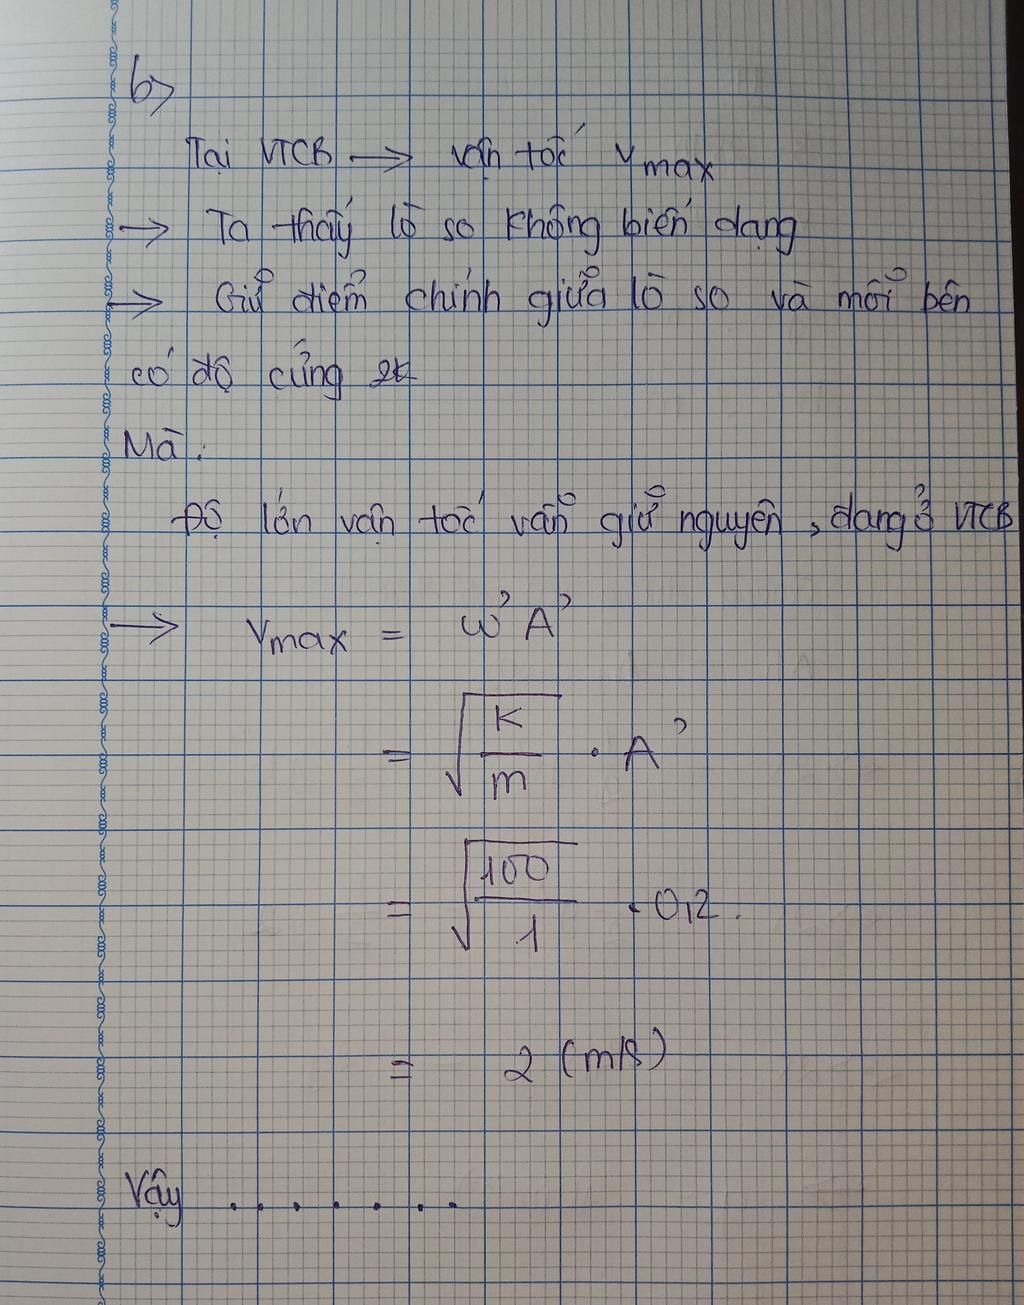 b>
Tại VTCB → vận tốc vmax
→ Ta thấy lò so không biến dạng
→ Giữ điểm chính giữa lò so và mỗi bên
có độ cứng 2k
Mà :
Độ lớn vận tốc vẫn giữ nguyên, đang ở VTCB
→ vmax = ω' A'
= √(K/m) . A'
= √(100/1) . 0,2.
= 2 (m/s)
Vậy . . . . . . .